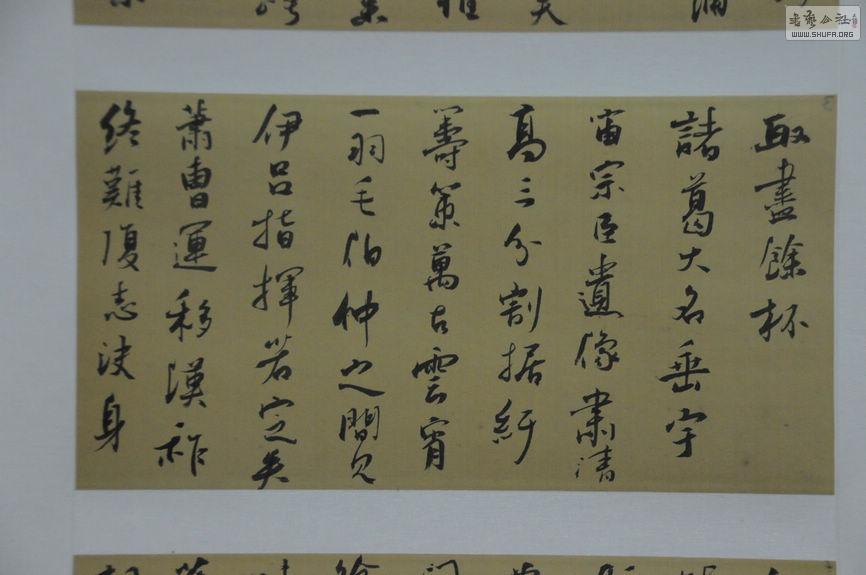 取盡餘杯
諸葛大名垂宇
宙宗臣遺像肅清
高三分割据紆
籌策萬古雲霄
一羽毛伯仲之間見
伊呂指揮若定失
蕭曹運移漢祚
終難復志决身
書藝公社
WWW.SHUFA.ORG